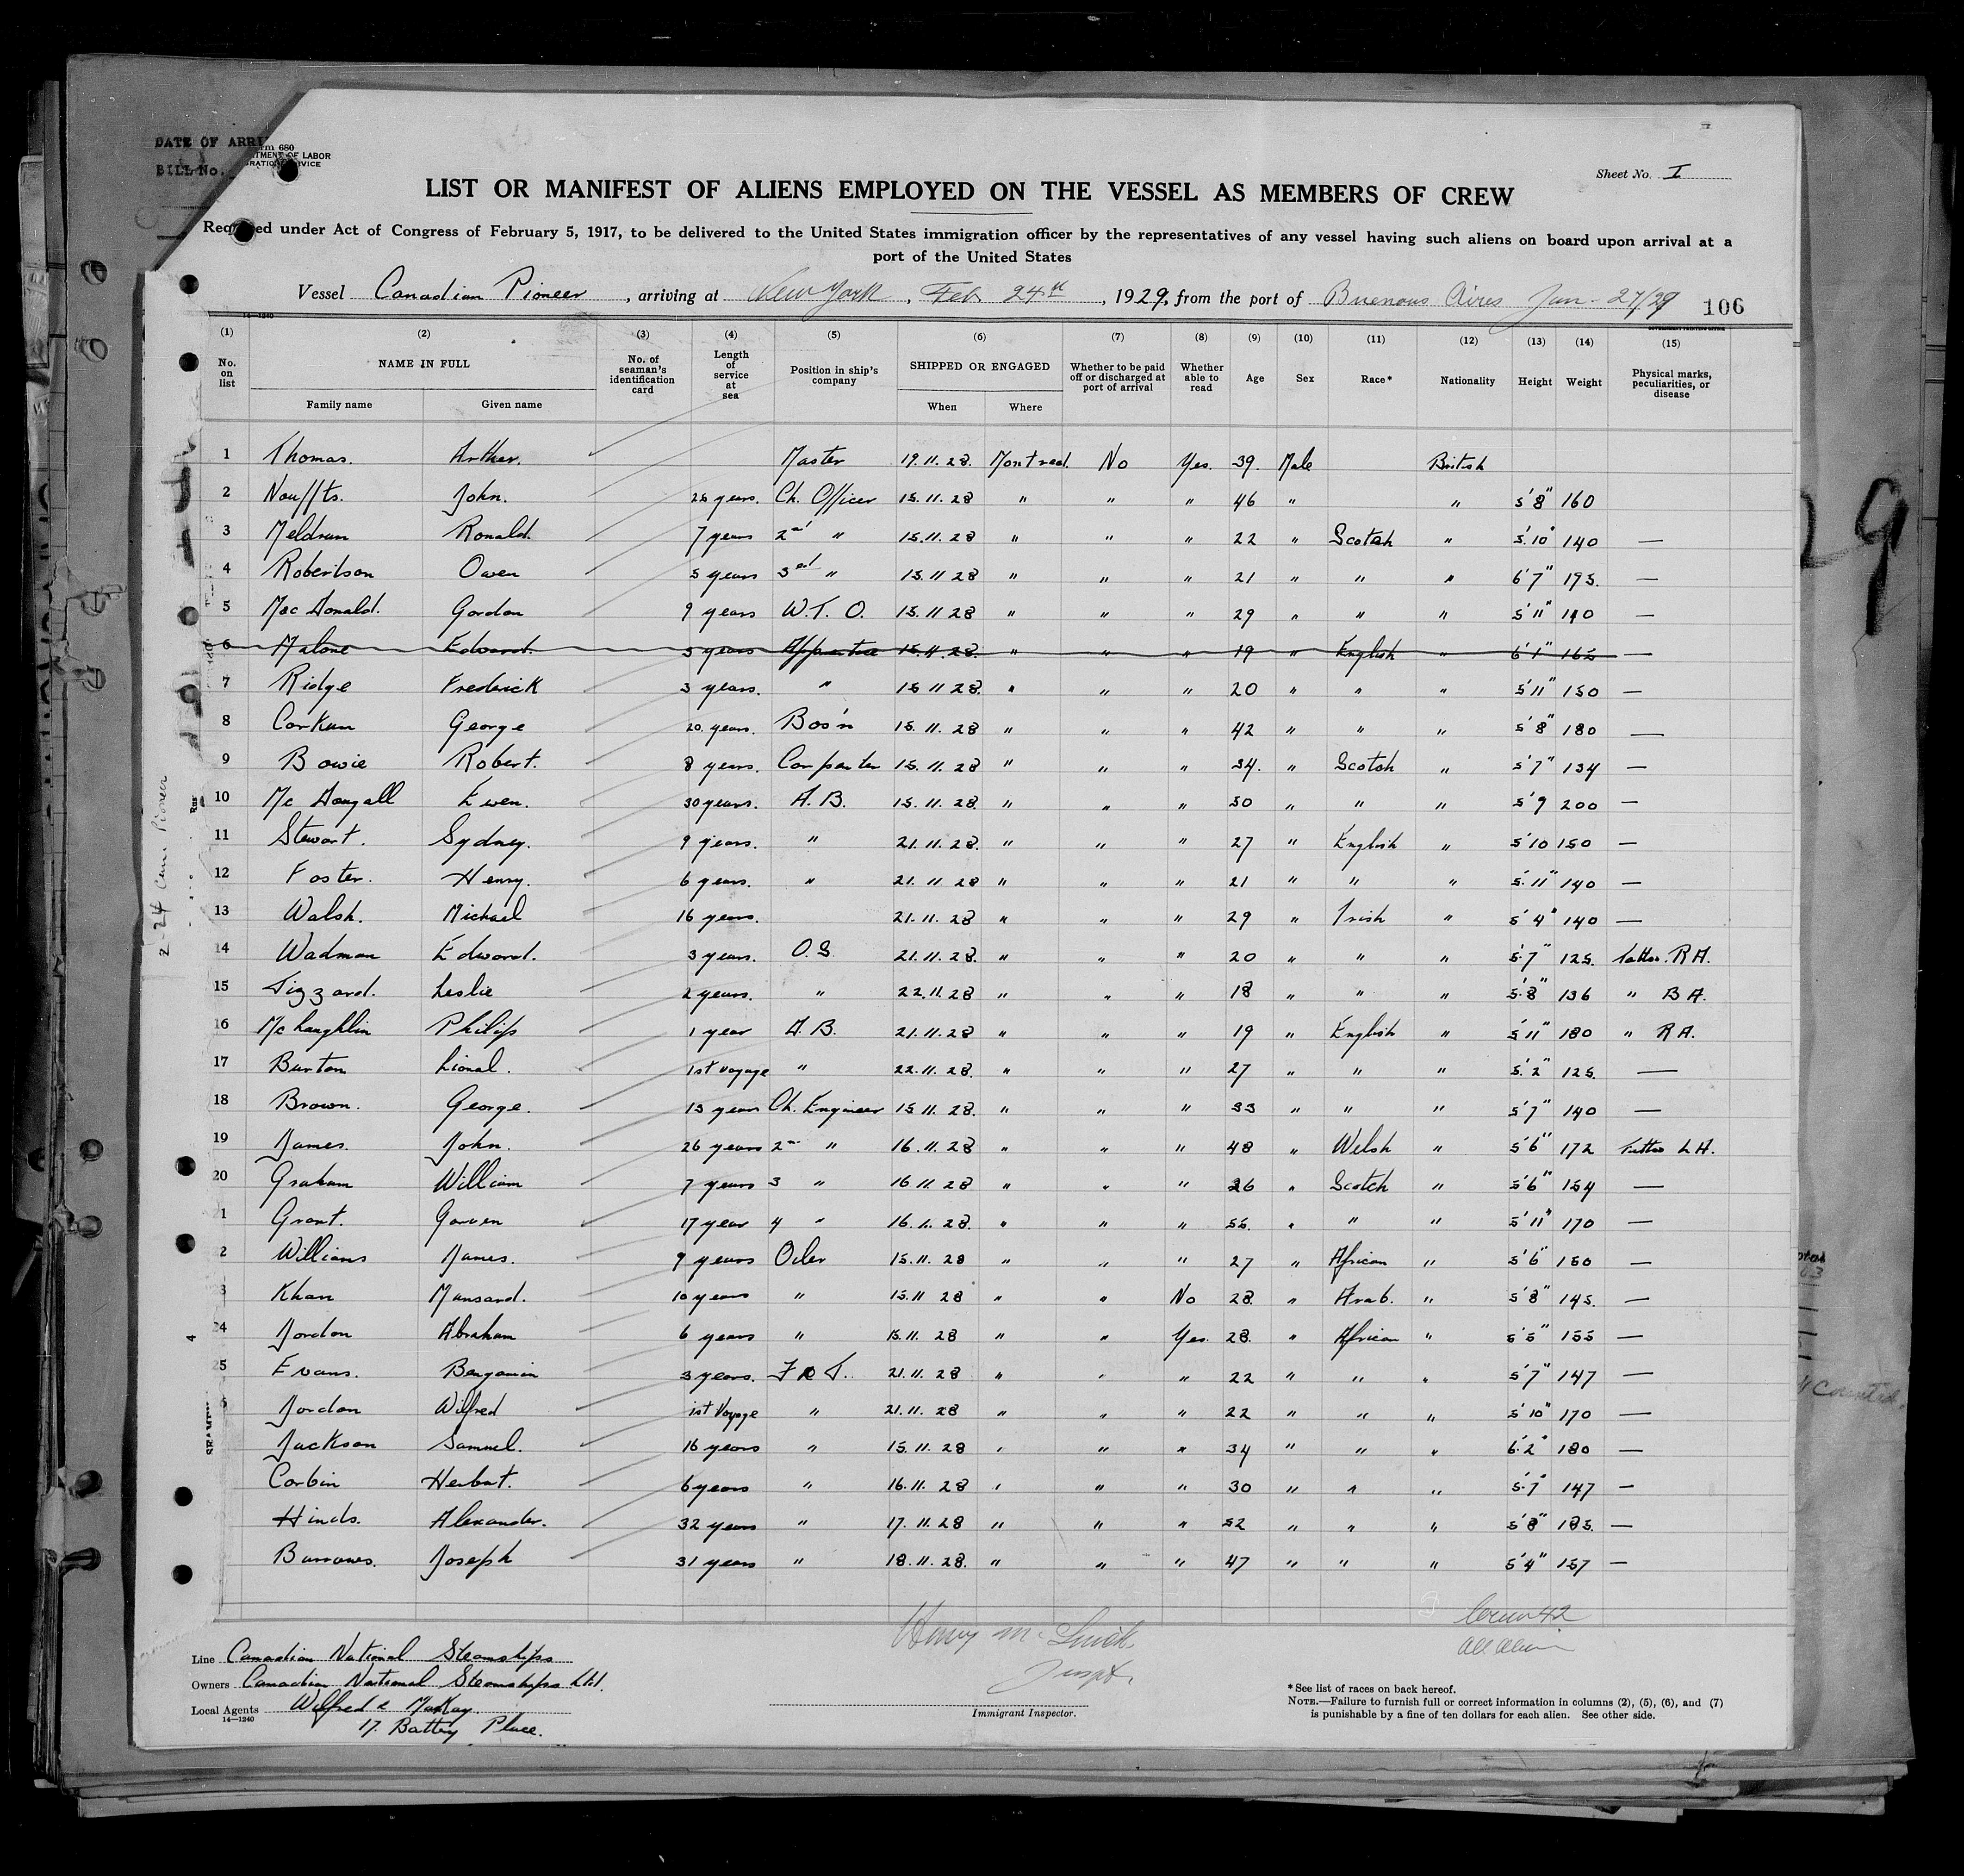 DATE OF ARRI
BILL No.
rm 680
TMENT OF LABOR
GRATION SERVICE
Sheet No. I
LIST OR MANIFEST OF ALIENS EMPLOYED ON THE VESSEL AS MEMBERS OF CREW
Req ed under Act of Congress of February 5, 1917, to be delivered to the United States immigration officer by the representatives of any vessel having such aliens on board upon arrival at a
port of the United States
Vessel Canadian Pioneer, arriving at New York, Feb 24th, 1929, from the port of Buenous Aires Jan - 27/29 106
14-1240
(1) (2) (3) (4) (5) (6) (7) (8) (9) (10) (11) (12) (13) (14) (15)
No. on list NAME IN FULL No. of seaman's identification card Length of service at sea Position in ship's company SHIPPED OR ENGAGED Whether to be paid off or discharged at port of arrival Whether able to read Age Sex Race* Nationality Height Weight Physical marks, peculiarities, or disease
Family name Given name When Where
1 Thomas. Arther. Master 19.11.28. Montreal. No Yes. 39. Male British
2 John. 28 years. Ch. Officer 15.11.28 " " " 46 " " 5'8" 160
3 Meldrum Ronald. 7 years 2nd " 15.11.28 " " " 22 " Scotch " 5'.10" 140 —
4 Robertson Owen 5 years 3rd " 15.11 28 " " " 21 " " " 6'7" 195. —
5 MacDonald. Gordon 9 years W.T.O. 15.11 28 " " " 29 " " " 5'11" 190 —
6 Malone Edward. 3 years Apprentice 15.11.28. " " " 19 " English " 6'1" 165 —
7 Ridge Frederick 3 years. " 15 11 28. " " " 20 " " " 5'11" 150 —
8 Corkum George 20. years. Bos'n 15.11.28 " " " 42 " " " 5'8" 180 —
9 Bowie Robert. 8 years. Carpenter 15.11.28 " " " 34. " Scotch " 5'7" 134 —
10 McDougall Ewen. 30 years. A.B. 15.11.28. " " " 50 " " " 5'9 200 —
11 Stewart. Sydney. 9 years. " 21.11.28. " " " 27 " English " 5'10 150 —
12 Foster. Henry. 6 years. " 21.11 28 " " " 21 " " " 5'.11" 140 —
13 Walsh. Michael 16 years. 21.11.28 " " " 29 " Irish " 5'4" 140 —
14 Wadman Edward. 3 years. O.S. 21.11.28. " " " 20 " " " 5'.7" 125. Tattoo. R A.
15 Tizzard. Leslie 2 years. " 22.11.28 " " " 18 " " " 5'.8" 136 " B A.
16 McLaughlin Philip 1 year A.B. 21.11.28 " " " 19 " English " 5'11" 180 " R A.
17 Burton Lional. 1st Voyage " 22.11.28. " " " 27 " " " 5'.2" 125. —
18 Brown. George. 13 years Ch. Engineer 15.11.28. " " " 33 " " " 5'7" 140 —
19 James. John. 26 years 2nd " 16.11.28 " " " 48 " Welsh " 5'6" 172 Tattoo L A.
20 Graham William 7 years 3 " 16 11.28 " " " 26 " Scotch " 5'6" 154 —
1 Grant. 17 year 4 " 28. " " " 55. " " " 5'11" 170 —
2 Williams James. 9 years Oiler 15.11.28 " " " 27 " African " 5'6" 150 —
3 Khan Mansard. 10 years " 15.11 28 " " No 28. " Arab. " 5'8" 145. —
24 Jordon Abraham 6 years " 15.11.28 " " Yes. 28. " African " 5'5" 155 —
25 Evans. Benjamin 3 years. 21.11.28 " " " 22 " " " 5'7" 147 —
6 Jordan Wilfred 1st Voyage " 21.11.28 " " " 22 " " " 5'10" 170 —
Jackson Samuel. 16 years " 15.11.28 " " " 34 " " " 6'.2" 180 —
Corbin Herbert. 6 years " 16.11.28 " " " 30 " " " 5'.7" 147 —
Hinds. Alexander. 32 years " 17.11.28 " " " 52 " " " 5'8" 185. —
Burrowes. Joseph 31 years " 18.11.28. " " " 47 " " " 5'4" 157 —
2-24 Pioneer
29
Counted.
Crew 42
All Alien
Line Canadian National Steamships
Owners Canadian National Steamships Ltd.
Local Agents Wilfred & McKay.
14—1240
17. Battery Place.
Henry
Inspt.
Immigrant Inspector.
* See list of races on back hereof.
NOTE.—Failure to furnish full or correct information in columns (2), (5), (6), and (7)
is punishable by a fine of ten dollars for each alien. See other side.